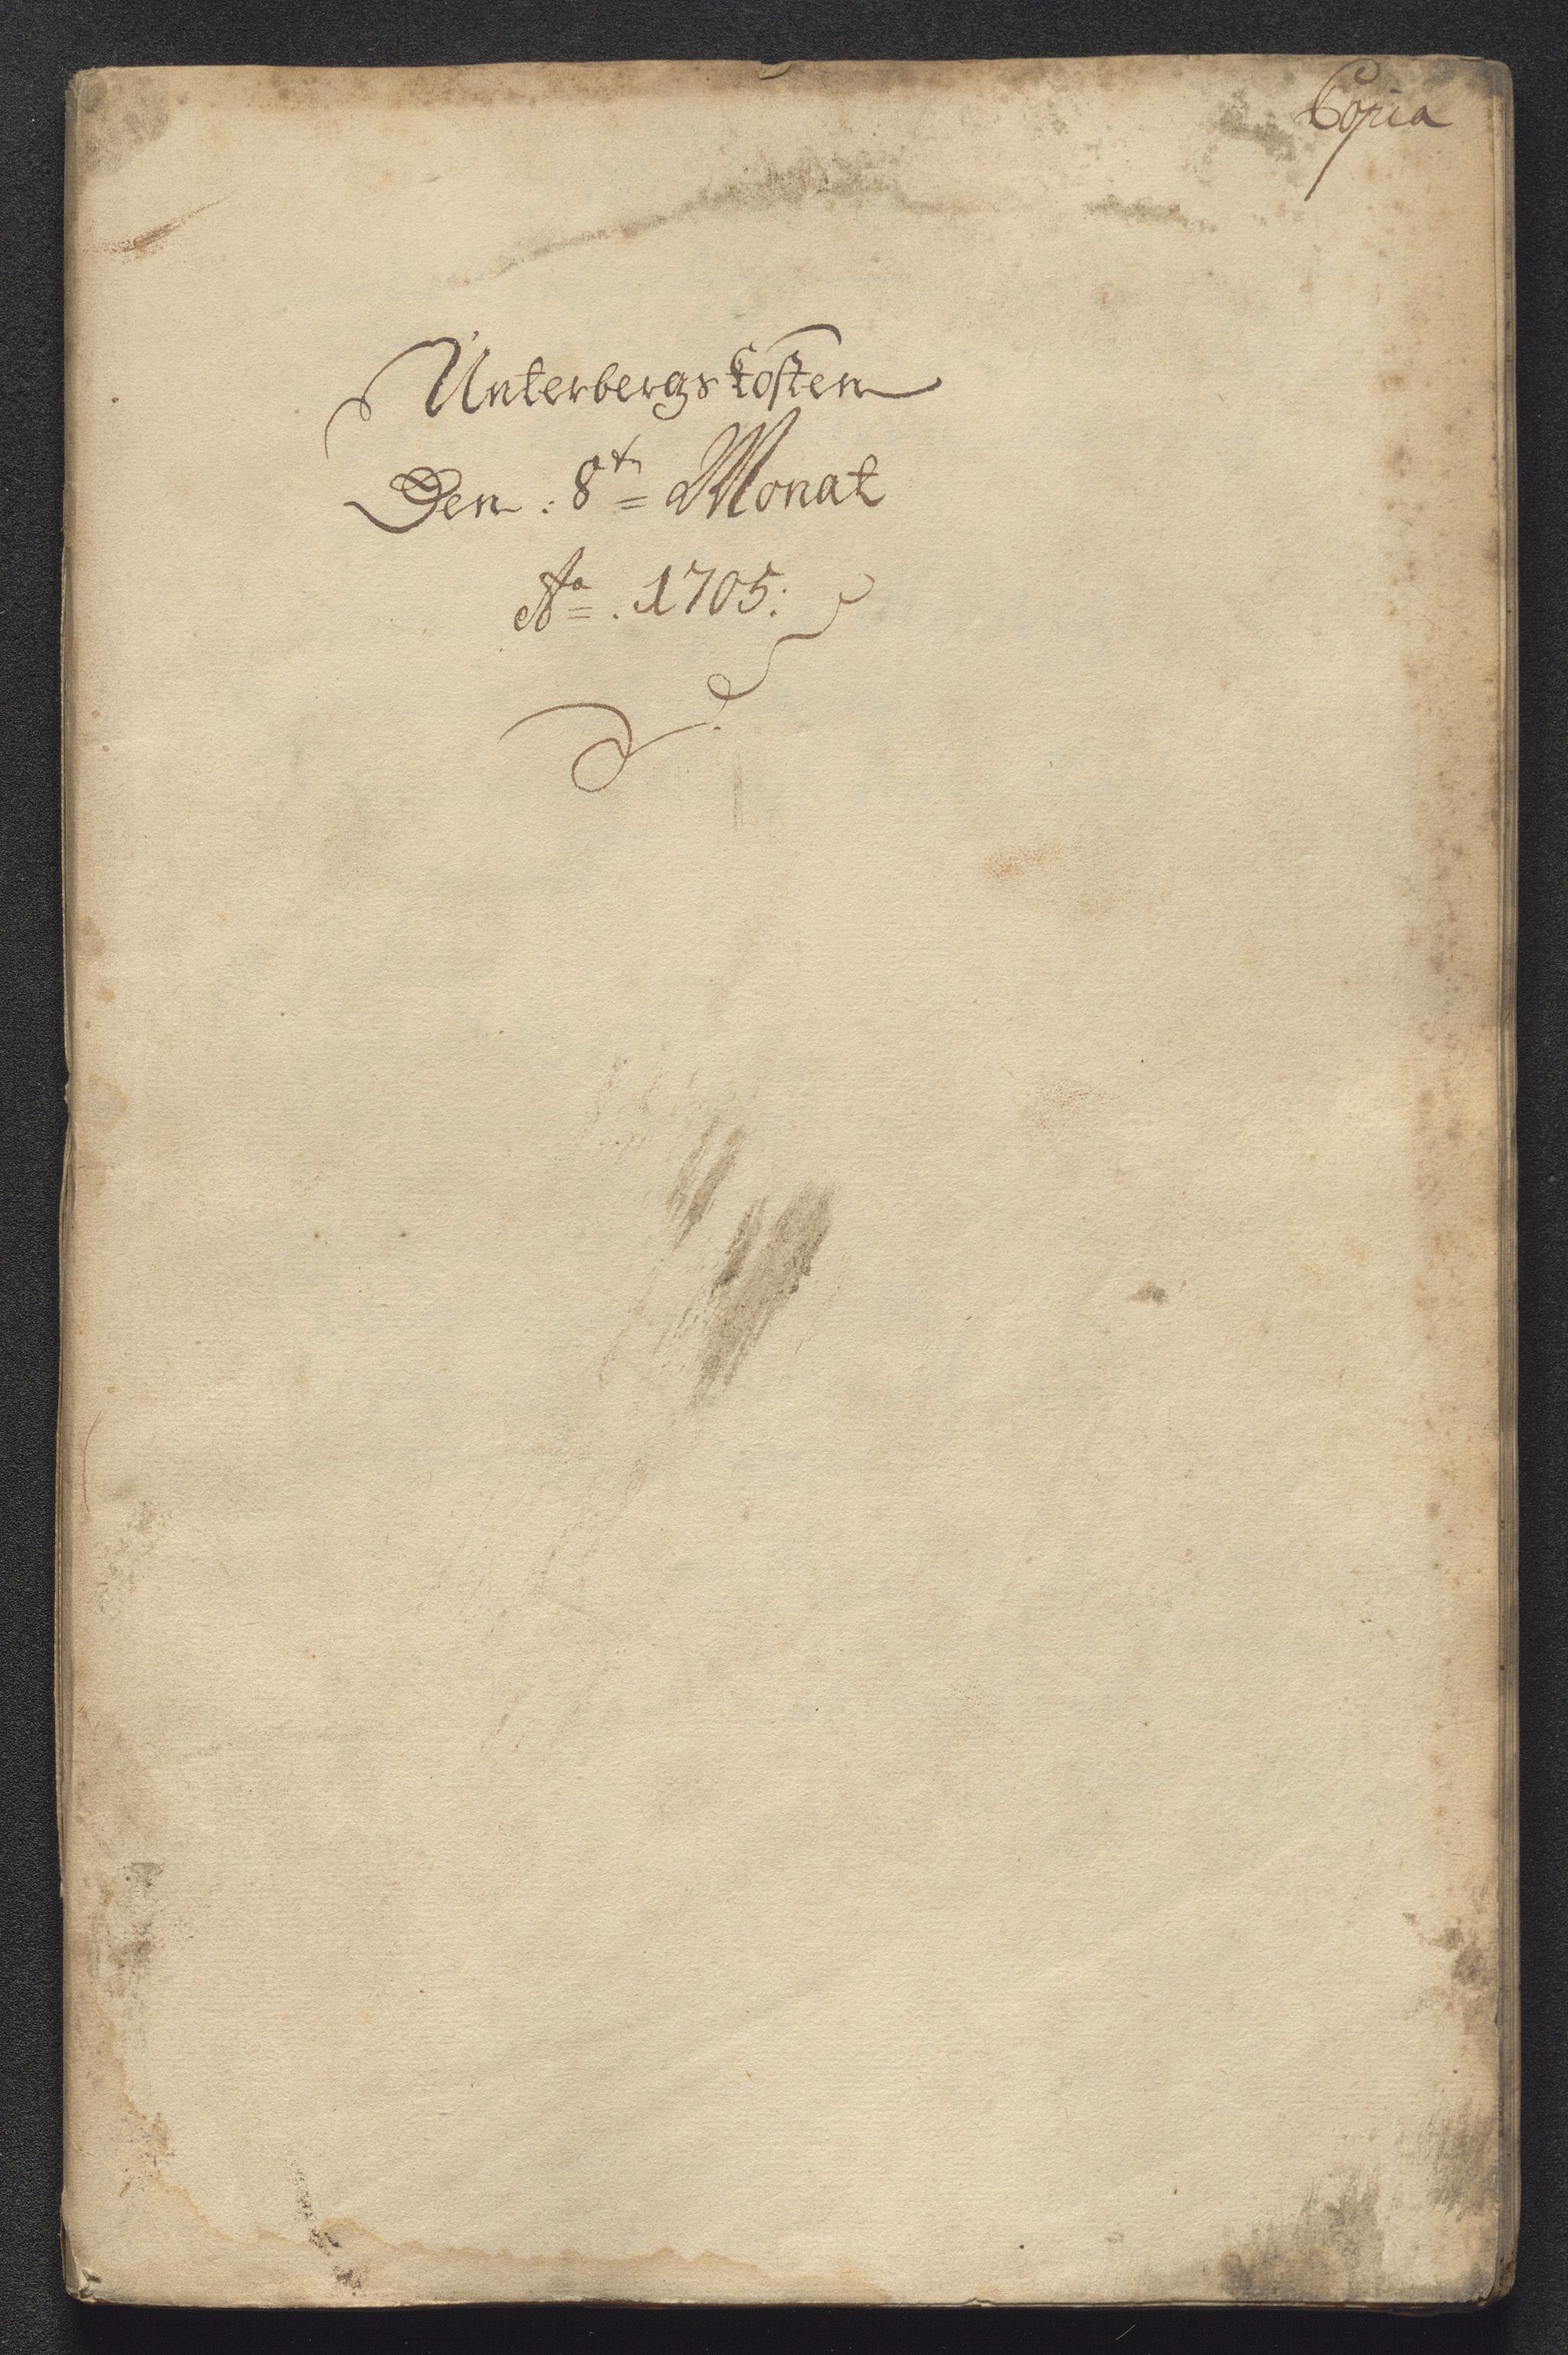 Copia
Unterbergs Kosten
Den: 8tn Monat
Ao. 1705: